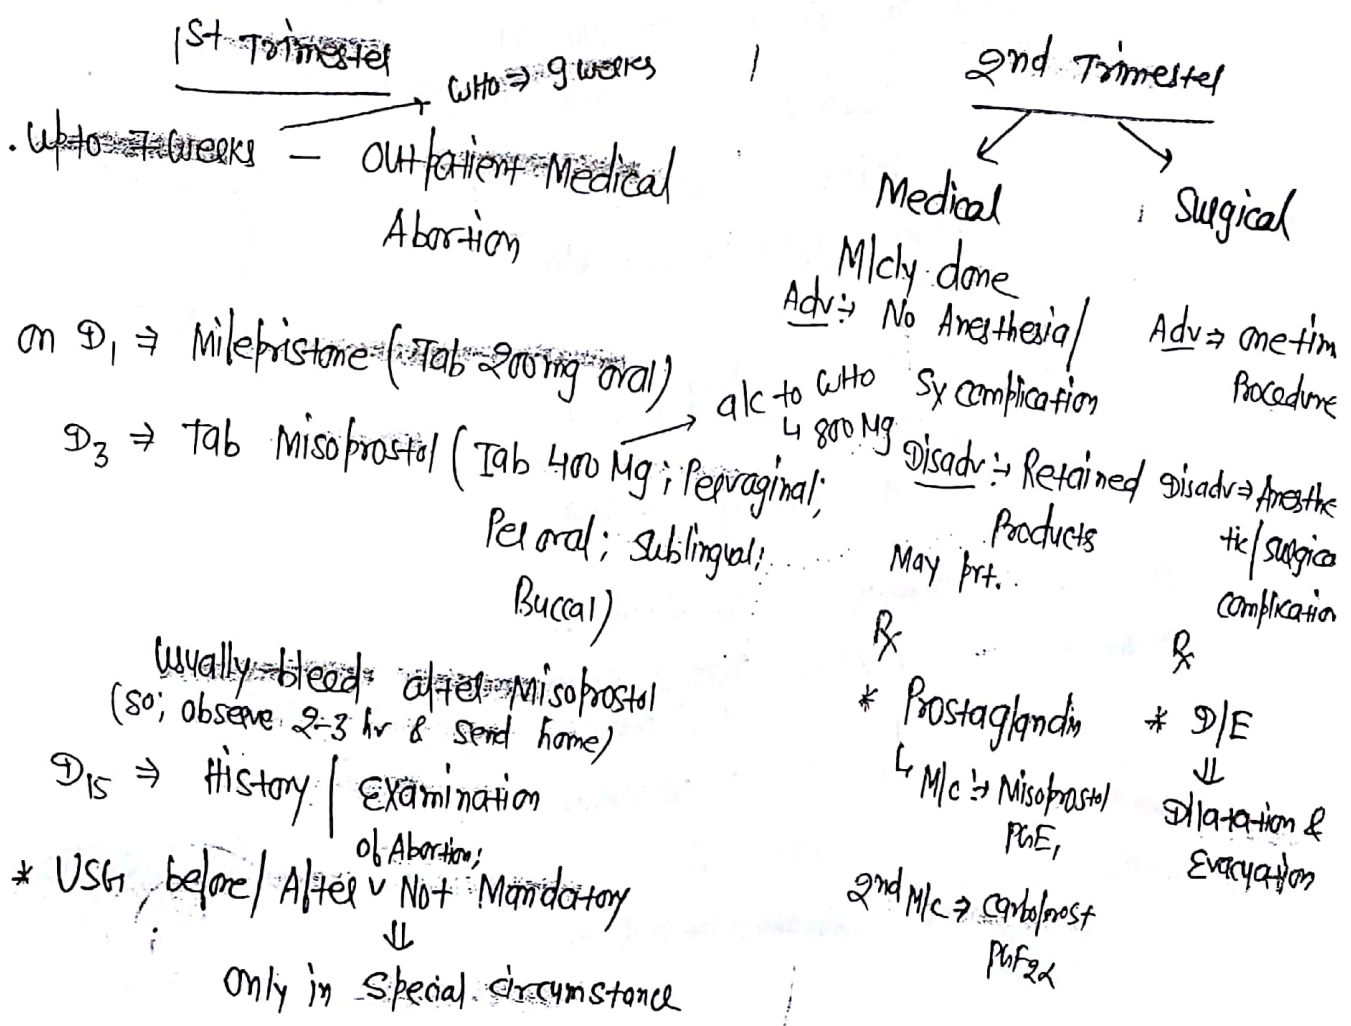 1st Trimester
WHO ⇒ 9 weeks
• Upto 7 weeks — Outpatient Medical
Abortion
on D1 ⇒ Mifepristone (Tab 200mg oral)
D3 ⇒ Tab Misoprostol (Tab 400 Mg; Pervaginal;
a/c to WHO
↳ 800 Mg
Per oral; Sublingual;
Buccal)
Usually bleed after Misoprostol
(so; observe 2-3 hr & Send home)
D15 ⇒ History / Examination
of Abortion;
* USG before/After Not Mandatory
⇓
Only in Special circumstance
2nd Trimester
Medical
M/cly done
Adv :→ No Anesthesia/
Sx complication
Disadv :→ Retained
Products
May prt.
Rx
* Prostaglandin
↳ M/c :→ Misoprostol
PGE1
2nd M/c ⇒ Carboprost
PGF2α
Surgical
Adv ⇒ one tim
Procedure
Disadv ⇒ Anesthe
tic/surgica
complication
Rx
* D/E
⇓
Dilatation &
Evacuation